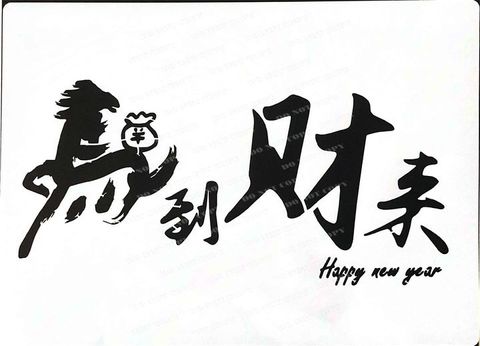 馬到财来
Happy new year